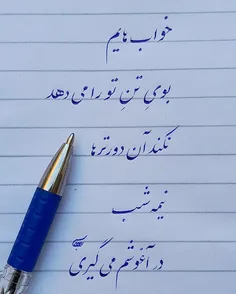 خواب هایم
بویِ تنِ تو را می دهد
نکند آن دورترها
نیمه شب
در آغوشم می گیری